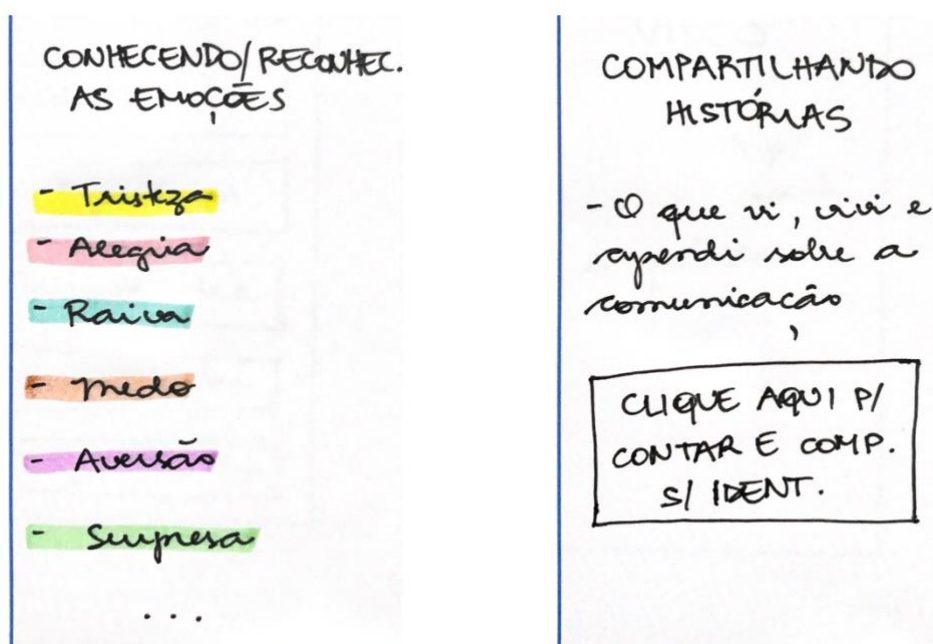 CONHECENDO/RECONHEC.
AS EMOÇÕES
- Tristeza
- Alegria
- Raiva
- Medo
- Aversão
- Surpresa
...
COMPARTILHANDO
HISTÓRIAS
- O que vi, vivi e
aprendi sobre a
comunicação
CLIQUE AQUI P/
CONTAR E COMP.
S/ IDENT.